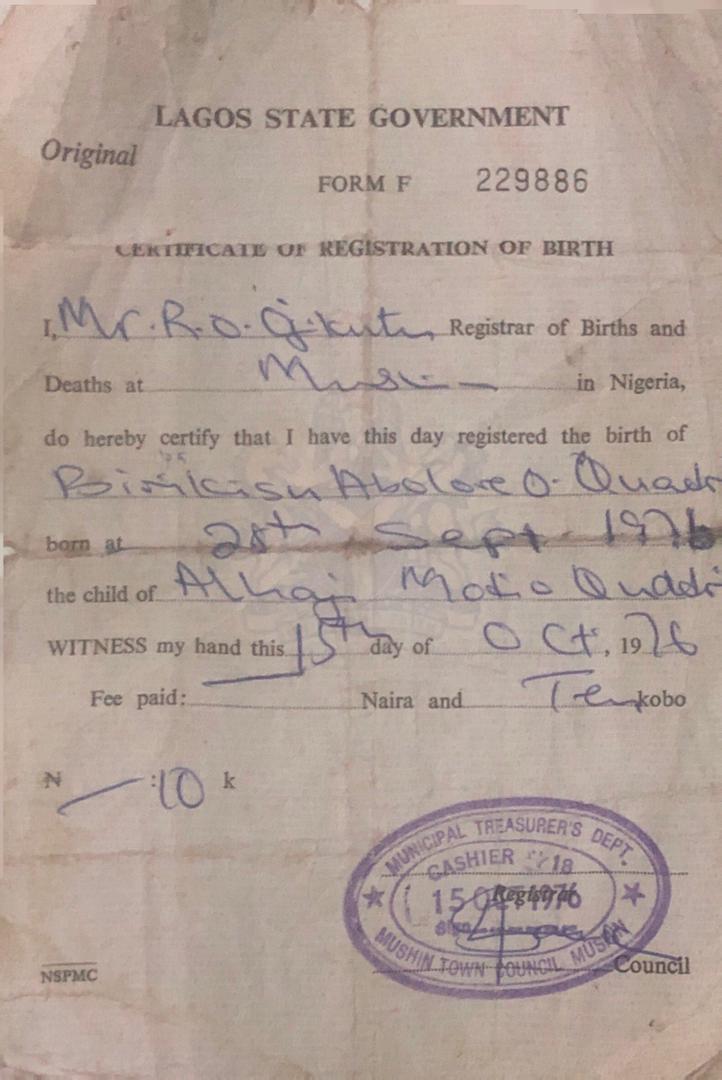 LAGOS STATE GOVERNMENT
Original
FORM F 229886
CERTIFICATE OF REGISTRATION OF BIRTH
I, Mr. R. O. Registrar of Births and
Deaths at Mushin in Nigeria,
do hereby certify that I have this day registered the birth of
Abolore O. Quadr
born at 28th Sept 1976
the child of Alhaji Quadri
WITNESS my hand this 15th day of Oct, 1976
Fee paid: Naira and Ten kobo
₦ — :10 k
MUNICIPAL TREASURER'S DEPT.
CASHIER 18
15 OCT 1976
Registrar
Sign
MUSHIN TOWN COUNCIL MUSHIN
Council
NSPMC